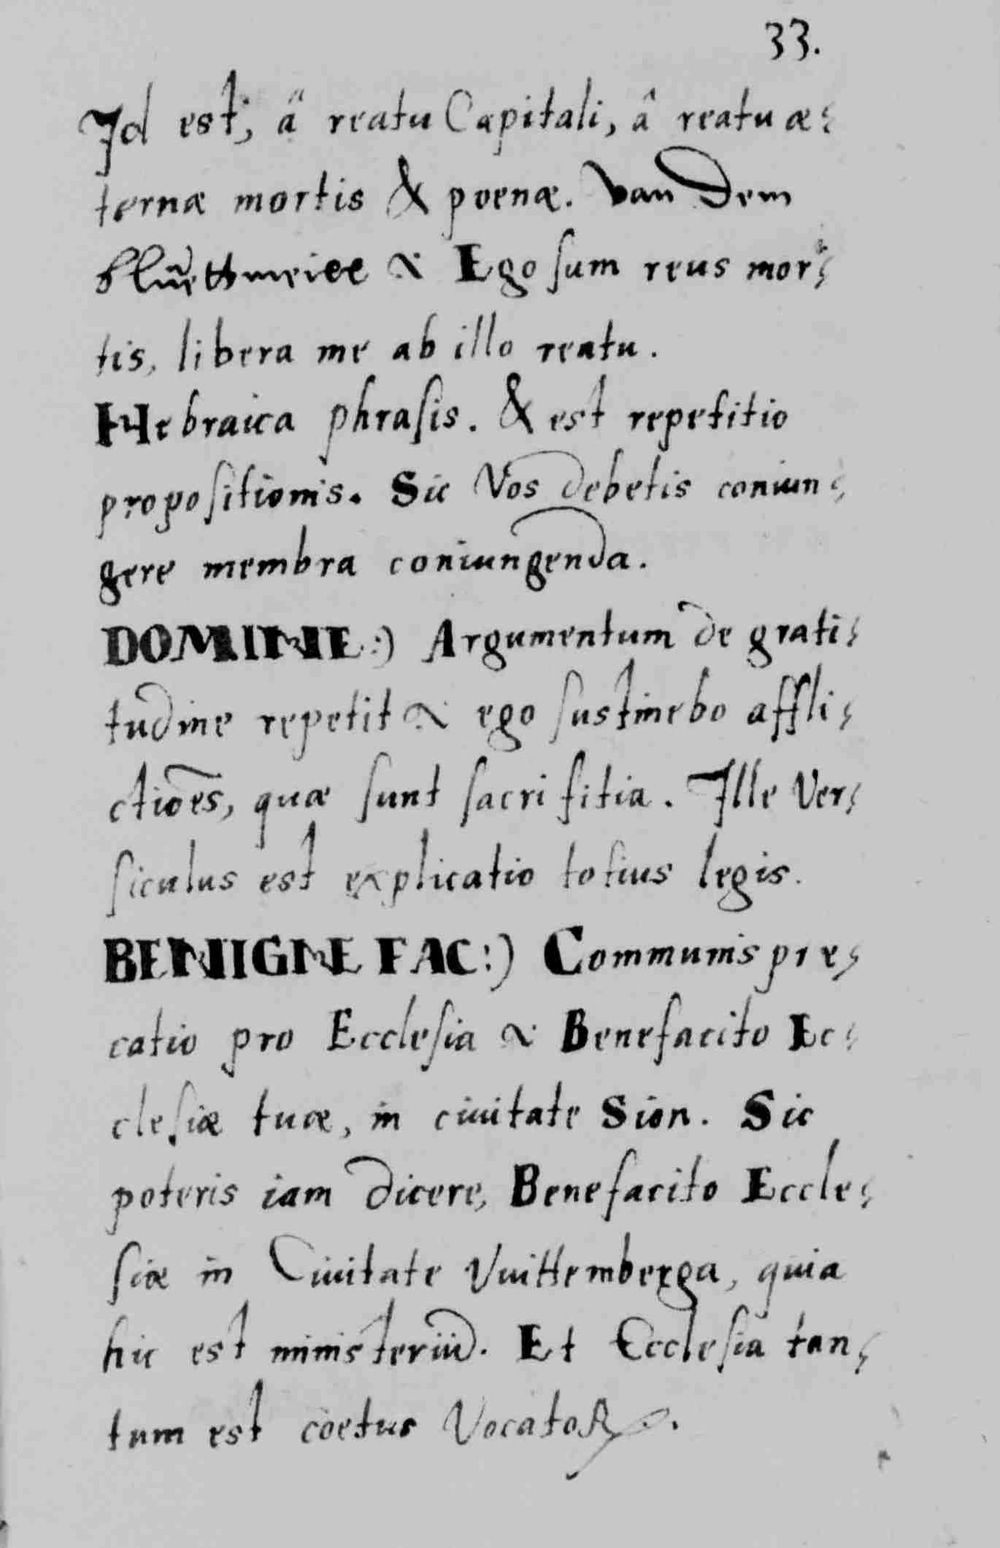 33.
Id est, â reatu Capitali, â reatu æ⸗
ternæ mortis & poenæ. Van Dem
& Ego sum reus mor⸗
tis, libera me ab illo reatu.
Hebraica phrasis. & est repetitio
propositionis. Sic Vos debetis coniun⸗
gere membra coniungenda.
DOMINE:) Argumentum de grati⸗
tudine repetit & ego sustinebo affli⸗
ctiões, quæ sunt sacrifitia. Ille Ver⸗
siculus est explicatio totius legis.
BENIGNE FAC:) Communis pre⸗
catio pro Ecclesia & Benefacito Ec⸗
clesiæ tuæ, in ciuitate Sion. Sic
poteris iam dicere, Benefacito Eccle⸗
siæ in Ciuitate Vuittemberga, quia
hic est ministeriũ. Et Ecclesia tan⸗
tum est coetus Vocatoꝝ.